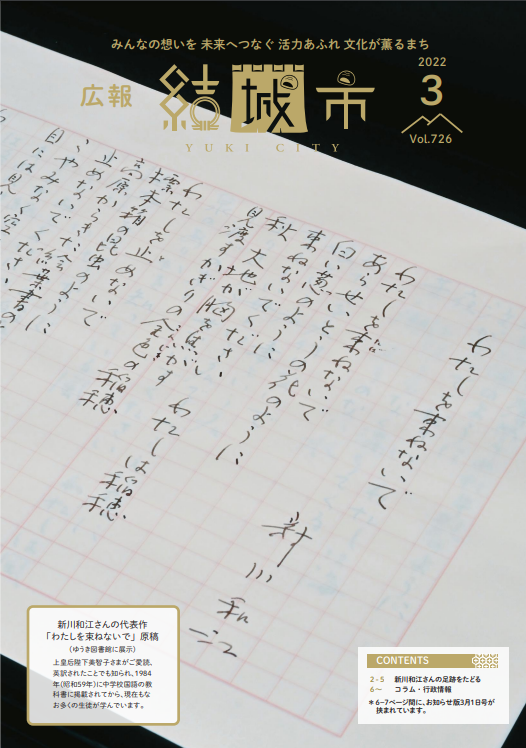 みんなの想いを 未来へつなぐ 活力あふれ 文化が薫るまち
広報 結城市
YUKI CITY
2022
3
Vol.726
わたしを束ねないで
新川和江
わたしを束ねないで
あらせいとうの花のように
白い葱のように
束ねないでください わたしは稲穂
秋 大地が胸を焦がす
見渡すかぎりの金色の稲穂
わたしを止めないで
標本箱の昆虫のように
高原からきた絵葉書の
新川和江さんの代表作
「わたしを束ねないで」原稿
(ゆうき図書館に展示)
上皇后陛下美智子さまがご愛読、
英訳されたことでも知られ、1984
年(昭和59年)に中学校国語の教
科書に掲載されてから、現在もな
お多くの生徒が学んでいます。
CONTENTS
2-5 新川和江さんの足跡をたどる
6〜 コラム・行政情報
＊6-7ページ間に、お知らせ版3月1日号が
挟まれています。